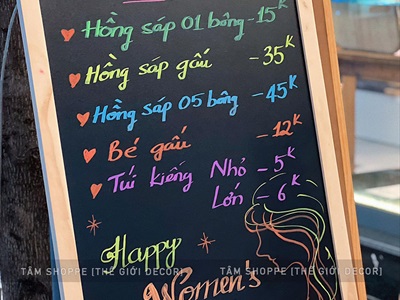 Hồng sáp 01 bông - 15K
Hồng sap gấu - 35K
Hồng sáp 05 bông - 45K
Bé gấu - 12K
Túi kiếng Nhỏ - 5K
Lớn - 6K
Happy
Women's
TÂM SHOPPE [THẾ GIỚI DECOR]
TÂM SHOPPE [THẾ GIỚI DECOR]